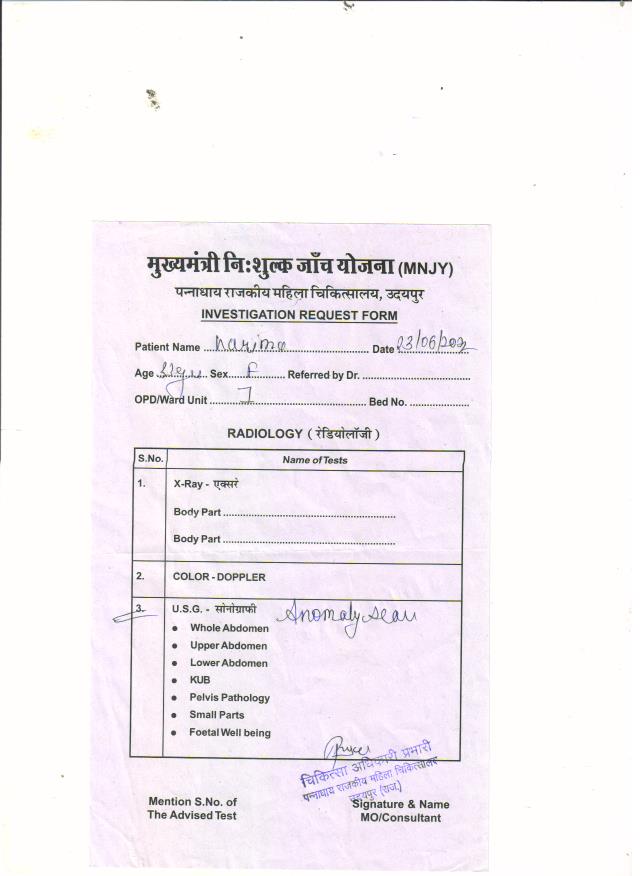 मुख्यमंत्री निःशुल्क जाँच योजना (MNJY)
पन्नाधाय राजकीय महिला चिकित्सालय, उदयपुर
INVESTIGATION REQUEST FORM
Patient Name ........ Date 23/06/202
Age ........ Sex F Referred by Dr. ........
OPD/Ward Unit I Bed No. ........
RADIOLOGY ( रेडियोलॉजी )
S.No. Name of Tests
1. X-Ray - एक्सरे
Body Part ........
Body Part ........
2. COLOR - DOPPLER
3. U.S.G. - सोनोग्राफी Anomaly scan
• Whole Abdomen
• Upper Abdomen
• Lower Abdomen
• KUB
• Pelvis Pathology
• Small Parts
• Foetal Well being
चिकित्सा अधिकारी प्रभारी
पन्नाधाय राजकीय महिला चिकित्सालय
उदयपुर (राज.)
Mention S.No. of Signature & Name
The Advised Test MO/Consultant